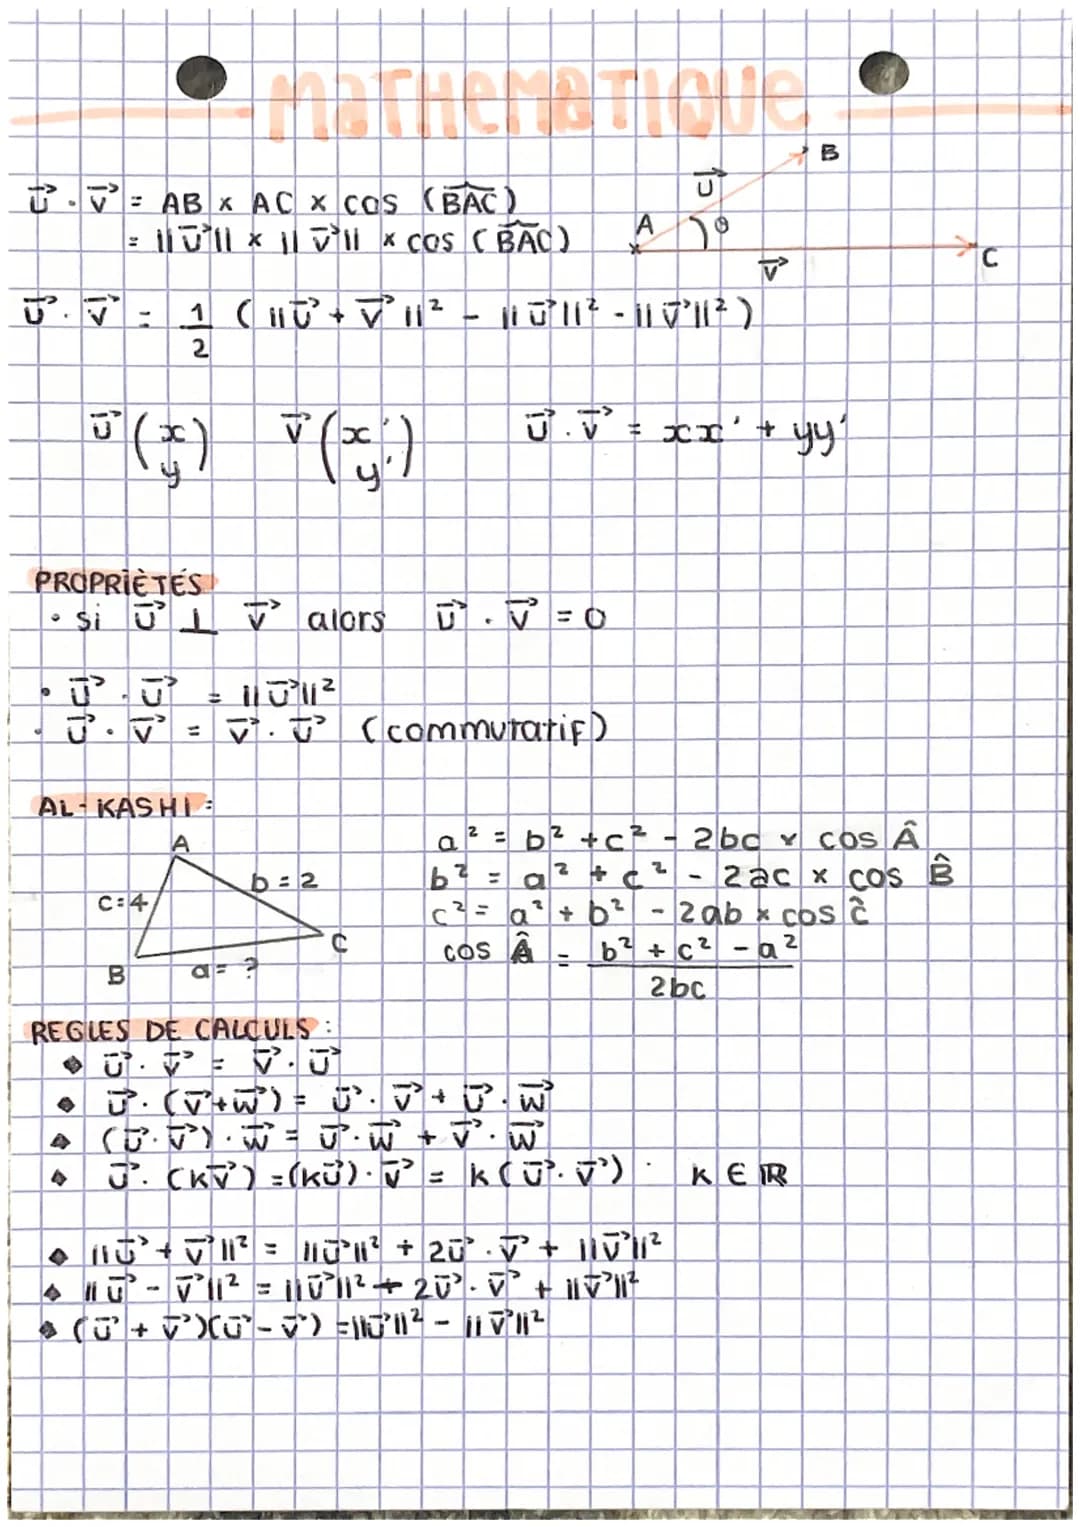 MATHEMATIQUE
B
u⃗
u⃗ . v⃗ = AB x AC x cos (BAC)
A
θ
= ||u⃗|| x || v⃗|| x cos (BAC)
C
v⃗
u⃗ . v⃗ = 1/2 ( ||u⃗ + v⃗ ||² - || u⃗||² - ||v⃗||² )
u⃗ (x y) v⃗ (x' y') u⃗ . v⃗ = xx' + yy'
PROPRIÈTÉS
• si u⃗ ⊥ v⃗ alors u⃗ . v⃗ = 0
• u⃗ . u⃗ = ||u⃗||²
• u⃗ . v⃗ = v⃗ . u⃗ (commutatif)
AL-KASHI :
A
c=4
b=2
B
a= ?
C
a² = b² + c² - 2bc x cos Â
b² = a² + c² - 2ac x cos B̂
c² = a² + b² - 2ab x cos ĉ
cos Â = (b² + c² - a²) / 2bc
REGLES DE CALCULS :
◆ u⃗ . v⃗ = v⃗ . u⃗
◆ u⃗ . (v⃗+w⃗) = u⃗ . v⃗ + u⃗ . w⃗
◆ (u⃗ . v⃗) . w⃗ = u⃗ . w⃗ + v⃗ . w⃗
◆ u⃗ . (kv⃗) = (ku⃗) . v⃗ = k (u⃗ . v⃗) . k ∈ ℝ
◆ ||u⃗ + v⃗||² = ||u⃗||² + 2u⃗ . v⃗ + ||v⃗||²
◆ ||u⃗ - v⃗||² = ||u⃗||² + 2u⃗ . v⃗ + ||v⃗||²
◆ (u⃗ + v⃗)(u⃗ - v⃗) = ||u⃗||² - ||v⃗||²